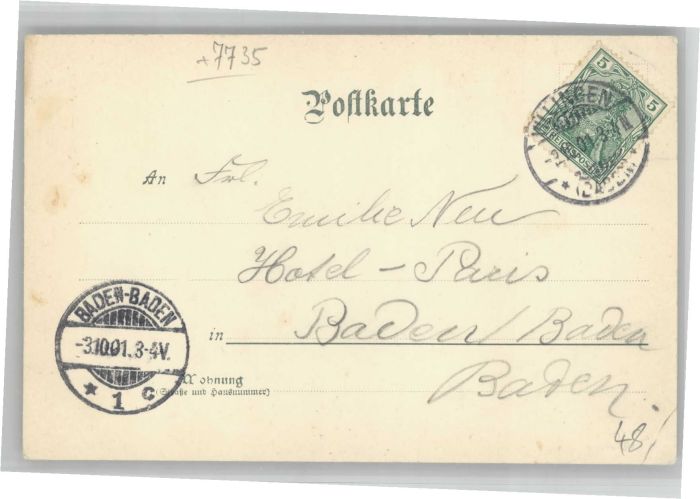 +7735
Postkarte
5 5
VILLINGEN
(BADEN)
An Frl.
Emilie Neu
Hotel - Paris
in Baden/Baden
Baden.
BADEN-BADEN
-3.10.01.3-4V.
* 1 c
Wohnung
(Straße und Hausnummer)
48/